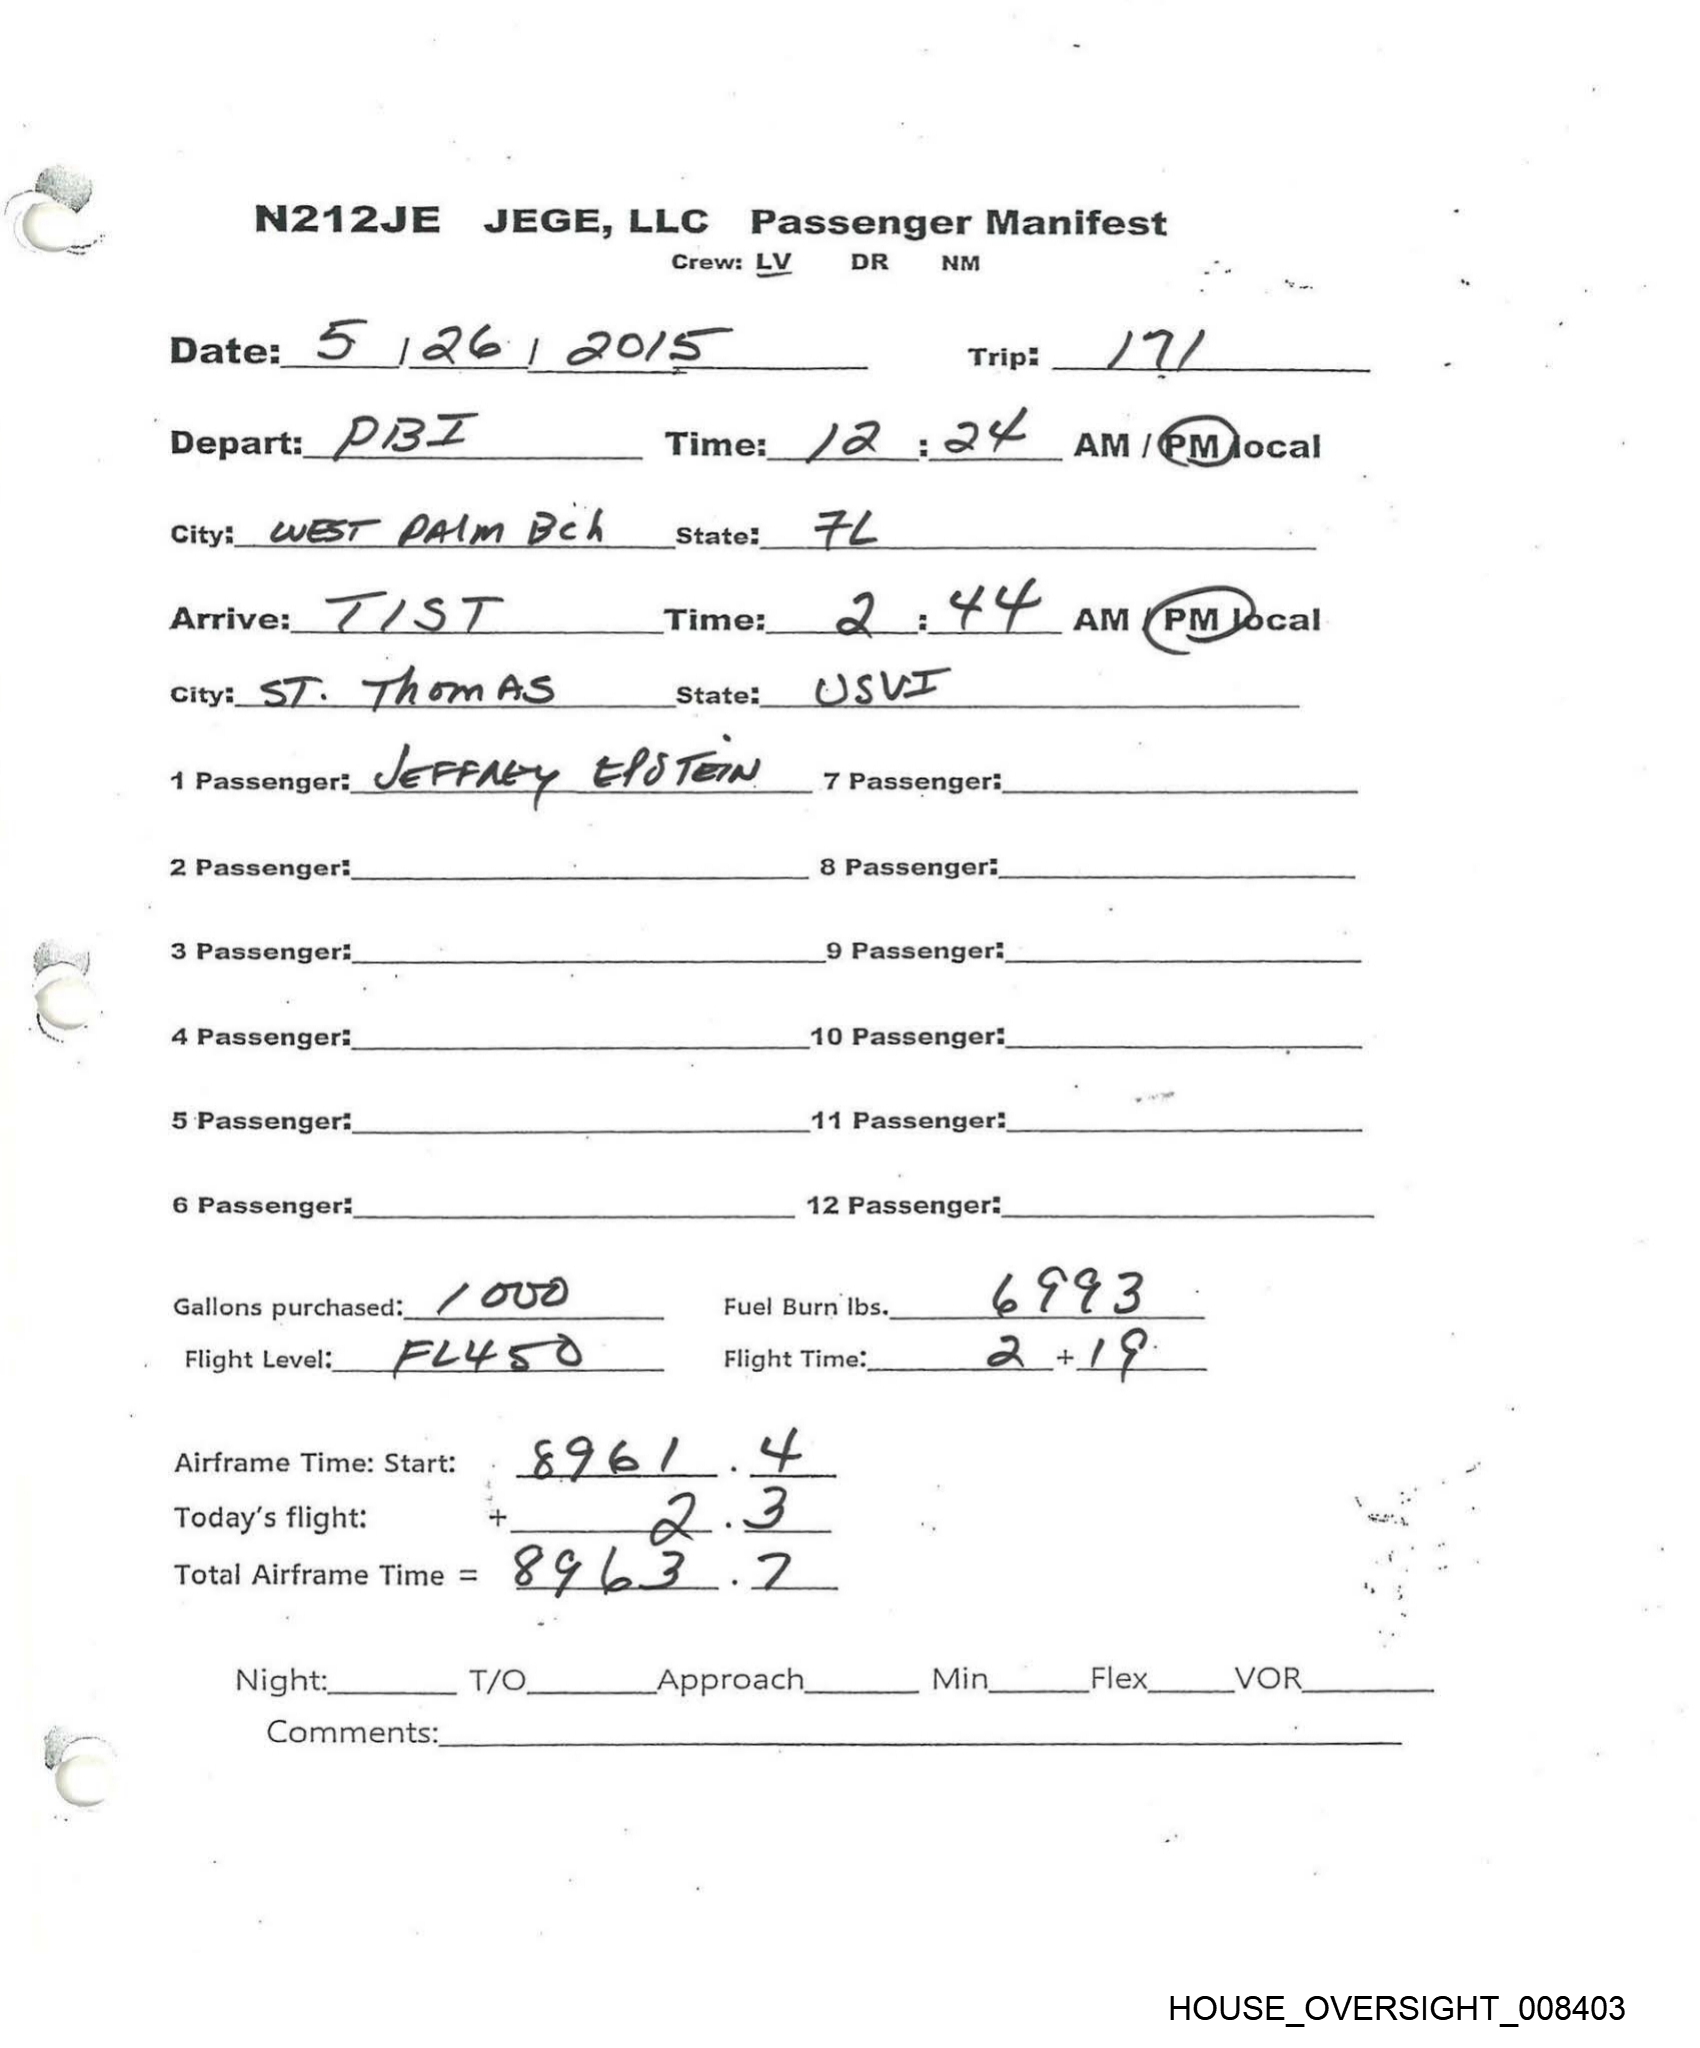 N212JE JEGE, LLC Passenger Manifest
Crew: LV DR NM
Date: 5 / 26 / 2015 Trip: 171
Depart: PBI Time: 12 : 24 AM / PM local
City: WEST PALM BCh State: FL
Arrive: TIST Time: 2 : 44 AM / PM local
City: ST. ThomAS State: USVI
1 Passenger: JEFFREY EPSTEIN 7 Passenger:
2 Passenger: 8 Passenger:
3 Passenger: 9 Passenger:
4 Passenger: 10 Passenger:
5 Passenger: 11 Passenger:
6 Passenger: 12 Passenger:
Gallons purchased: 1000 Fuel Burn lbs. 6993
Flight Level: FL450 Flight Time: 2 + 19
Airframe Time: Start: 8961 . 4
Today's flight: + 2 . 3
Total Airframe Time = 8963 . 7
Night: T/O Approach Min Flex VOR
Comments:
HOUSE_OVERSIGHT_008403